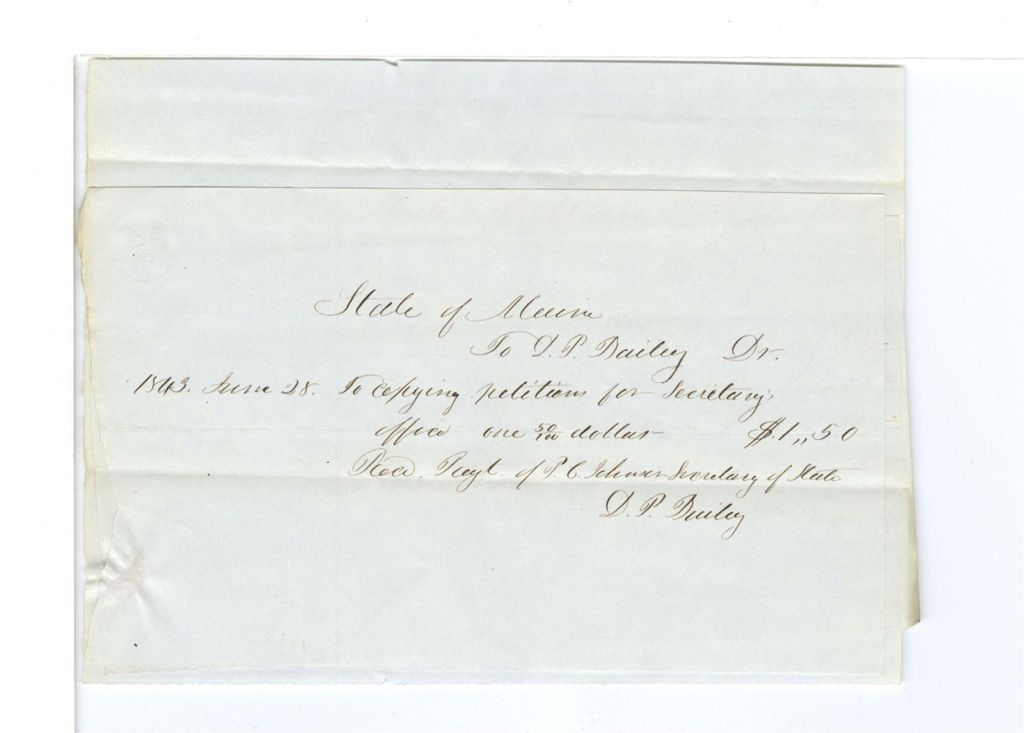 State of Maine
To D. P. Bailey Dr.
1843. June 28. To copying petitions for Secretary's
office one 50/100 dollar $.1,,50
Recd. Payt of P. C. Johnson Secretary of State
D. P. Bailey